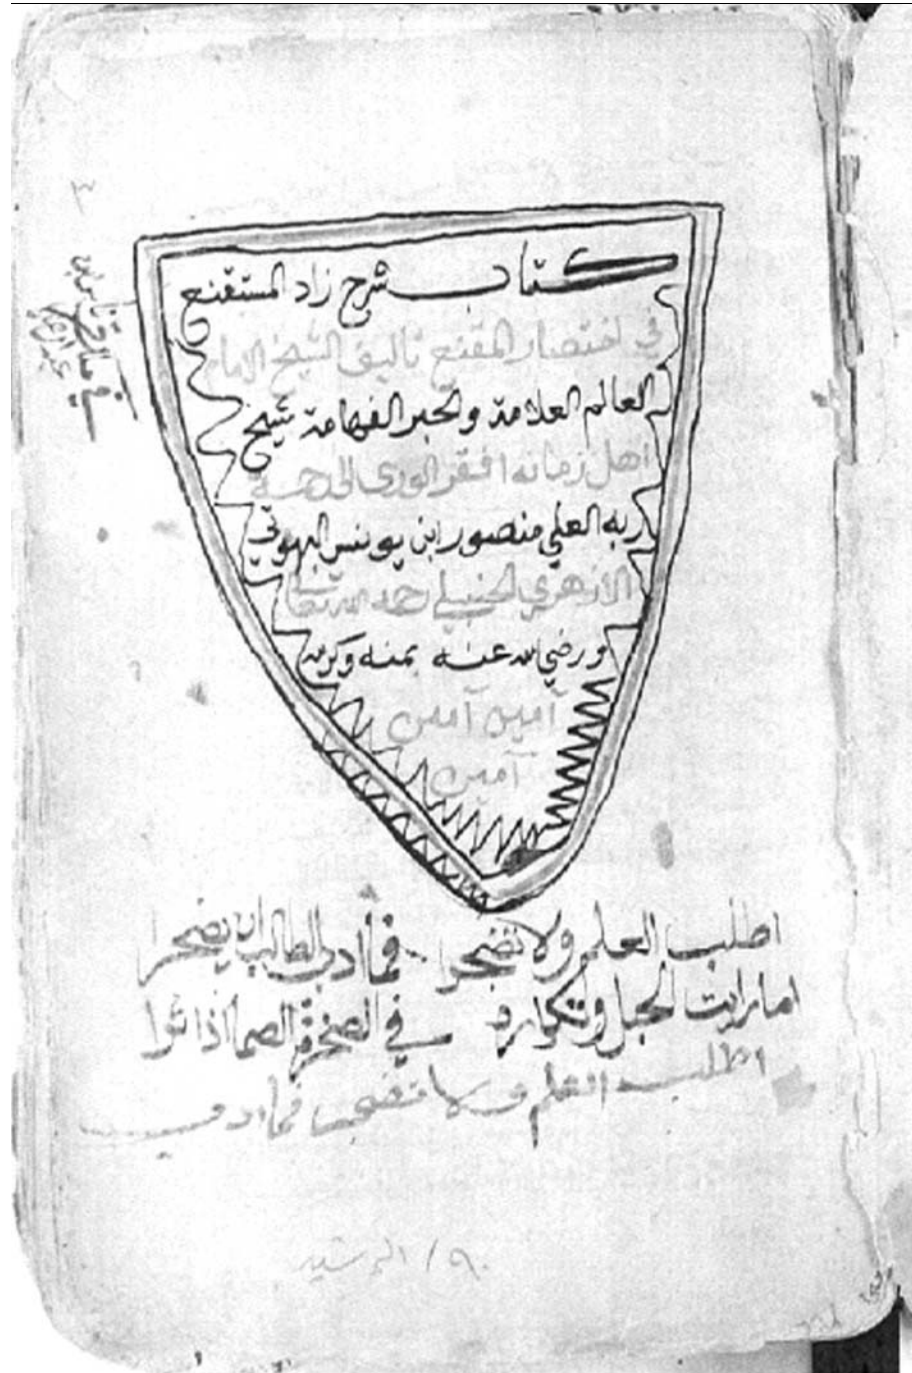 ٣
كتاب شرح زاد المستقنع
في اختصار المقنع تاليف الشيخ الامام
العالم العلامة والحبر الفهامة شيخ
اهل زمانه افقر الورى الى رحمة
ربه العلي منصور ابن يونس البهوتي
الازهري الحنبلي رحمه الله تعالى
ورضي الله عنه بمنه وكرمه
آمين آمين
آمين
اطلب العلم ولا تضجرا فما ادب الطالب ان يضجرا
اما رايت الحبل وتكراره في الصخرة الصما اذ اثرا
اطلب العلم ولا تضجرا فما ادب
٩٠ / الرشيد